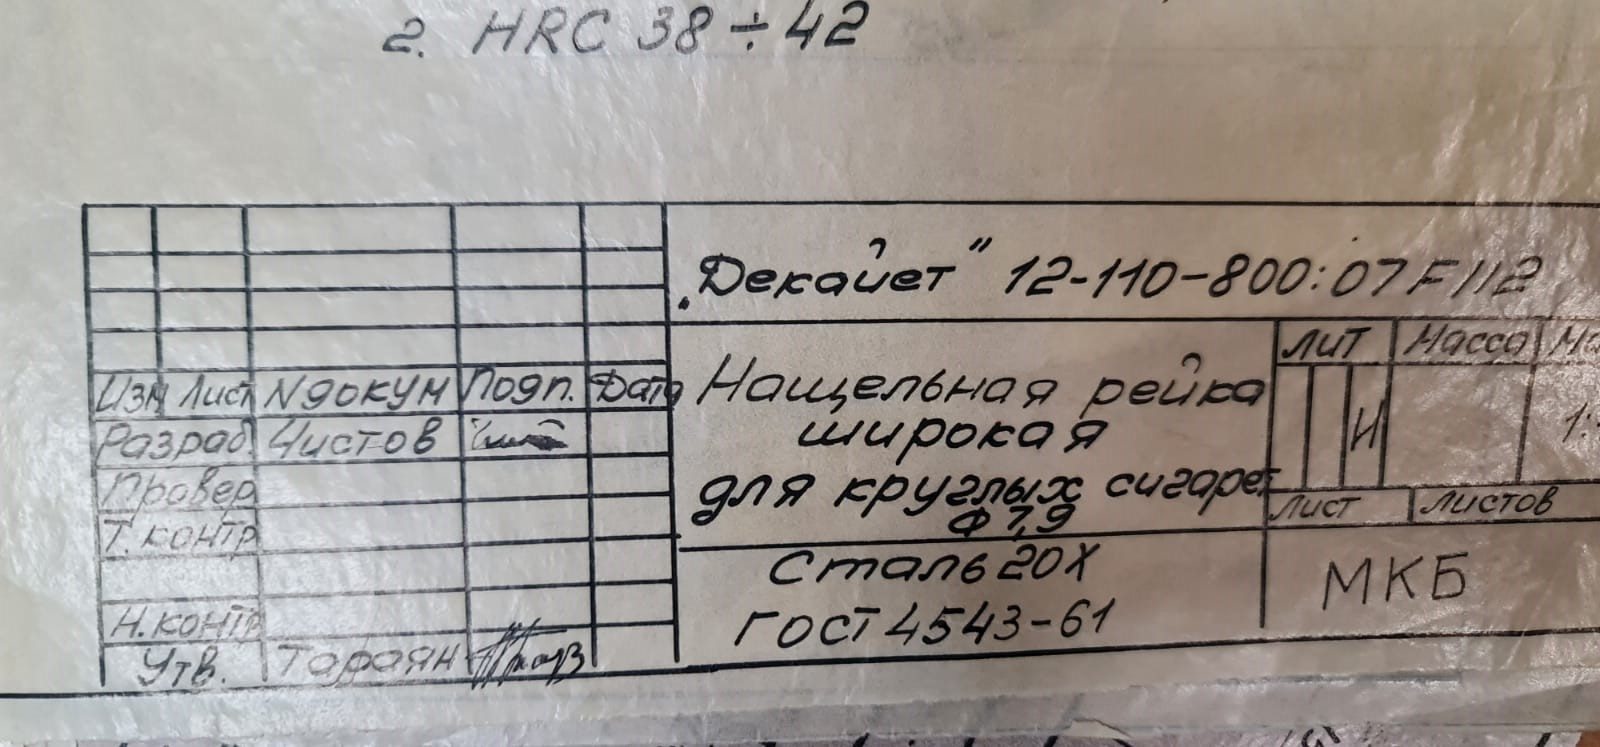 2. HRC 38÷42
„Декайет" 12-110-800:07F112
Нащельная рейка
широкая
для круглых сигарет
Ф 7,9
Сталь 20Х
ГОСТ 4543-61
Лит Масса
И
1:
Лист Листов
МКБ
Изм Лист № докум Подп. Дата
Разраб. Чистов
Провер
Т. контр
Н. контр
Утв. Тароян